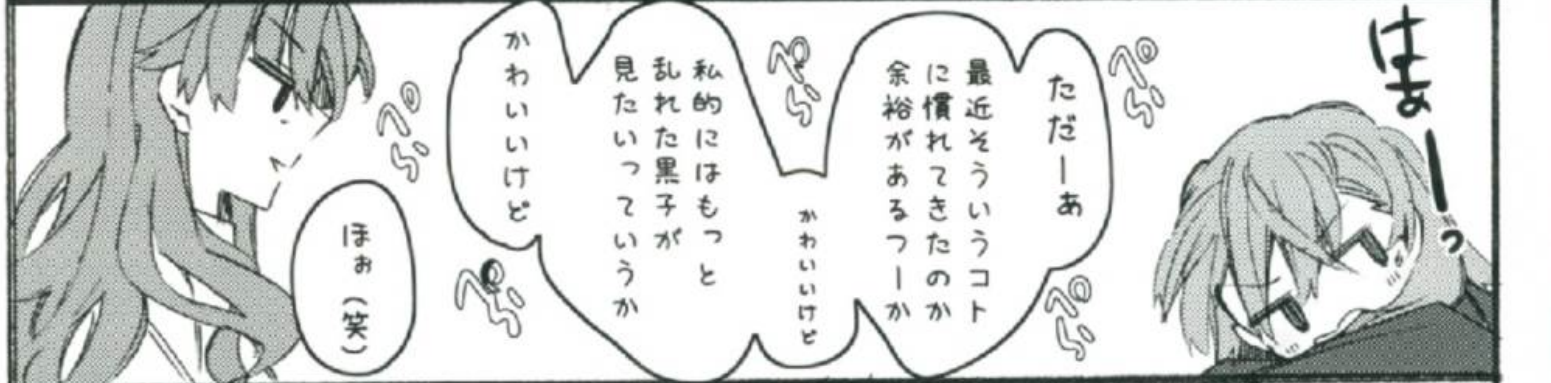 はぁーっ
ぺら
ただーあ
最近そういうコト
に慣れてきたのか
余裕があるつーか
ぺら
ぺら
かわいいけど
私的にはもっと
乱れた黒子が
見たいっていうか
かわいいけど
ぺら
ぺら
ほぉ(笑)